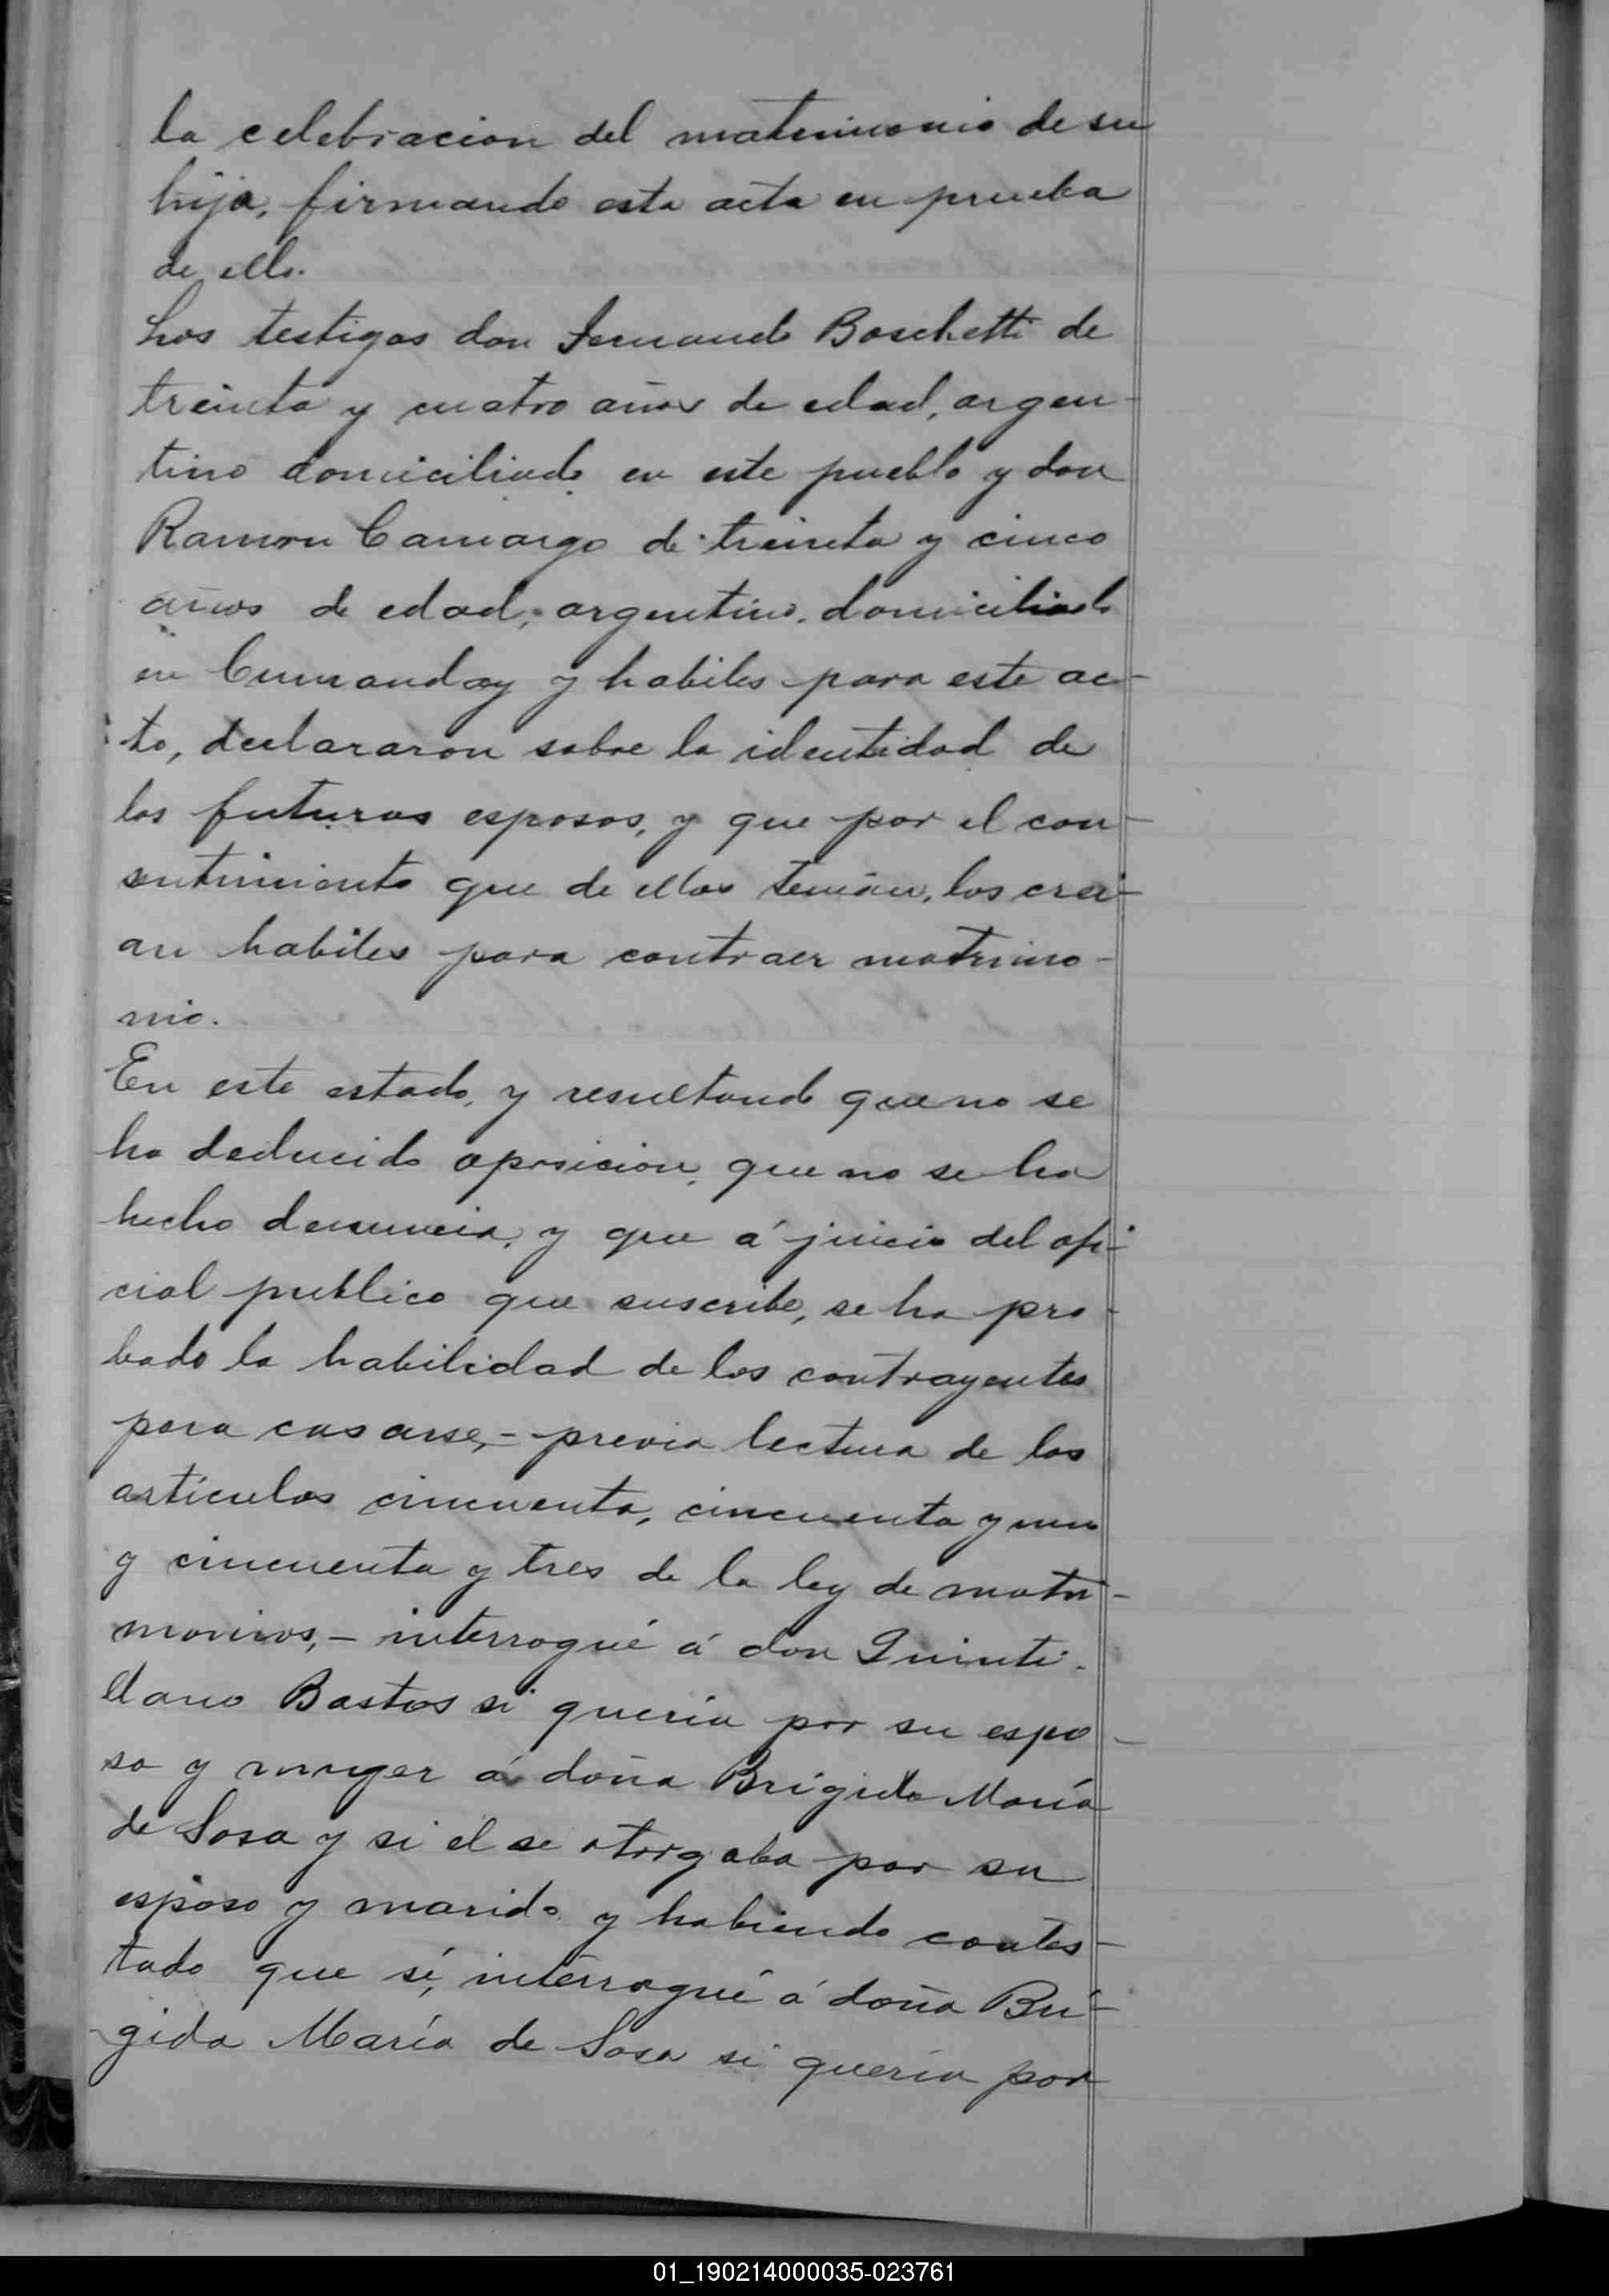 la celebracion del matrimonio de su
hija, firmando esta acta en prueba
de ello.
Los testigos don Fernando Boschetti de
treinta y cuatro años de edad, argen-
tino domiciliado en este pueblo y don
Ramon Camargo de treinta y cinco
años de edad, argentino, domiciliado
en Cumanday y habiles para este ac-
to, declararon sobre la identidad de
los futuros esposos, y que por el con-
sentimiento que de ellos tenian, los crei-
an habiles para contraer matrimo-
nio.
En este estado, y resultando que no se
ha deducido oposicion, que no se ha
hecho denuncia, y que á juicio del ofi-
cial publico que suscribe, se ha pro-
bado la habilidad de los contrayentes
para casarse,- previa lectura de los
artículos cincuenta, cincuenta y uno
y cincuenta y tres de la ley de matri-
monios,- interrogué á don Quinti-
liano Bastos si quería por su espo-
sa y muger á doña Brígida María
de Sosa y si el se otorgaba por su
esposo y marido, y habiendo contes-
tado que sí, interrogué á doña Brí-
gida María de Sosa si quería por
01_190214000035-023761